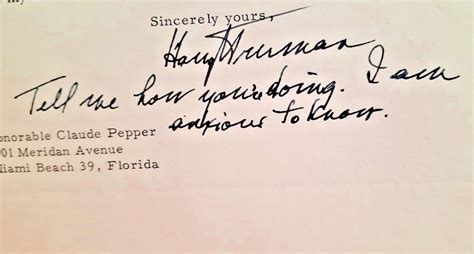 Sincerely yours,
Harry Truman
Tell me how you're doing. I am
anxious to know.
onorable Claude Pepper
01 Meridan Avenue
iami Beach 39, Florida